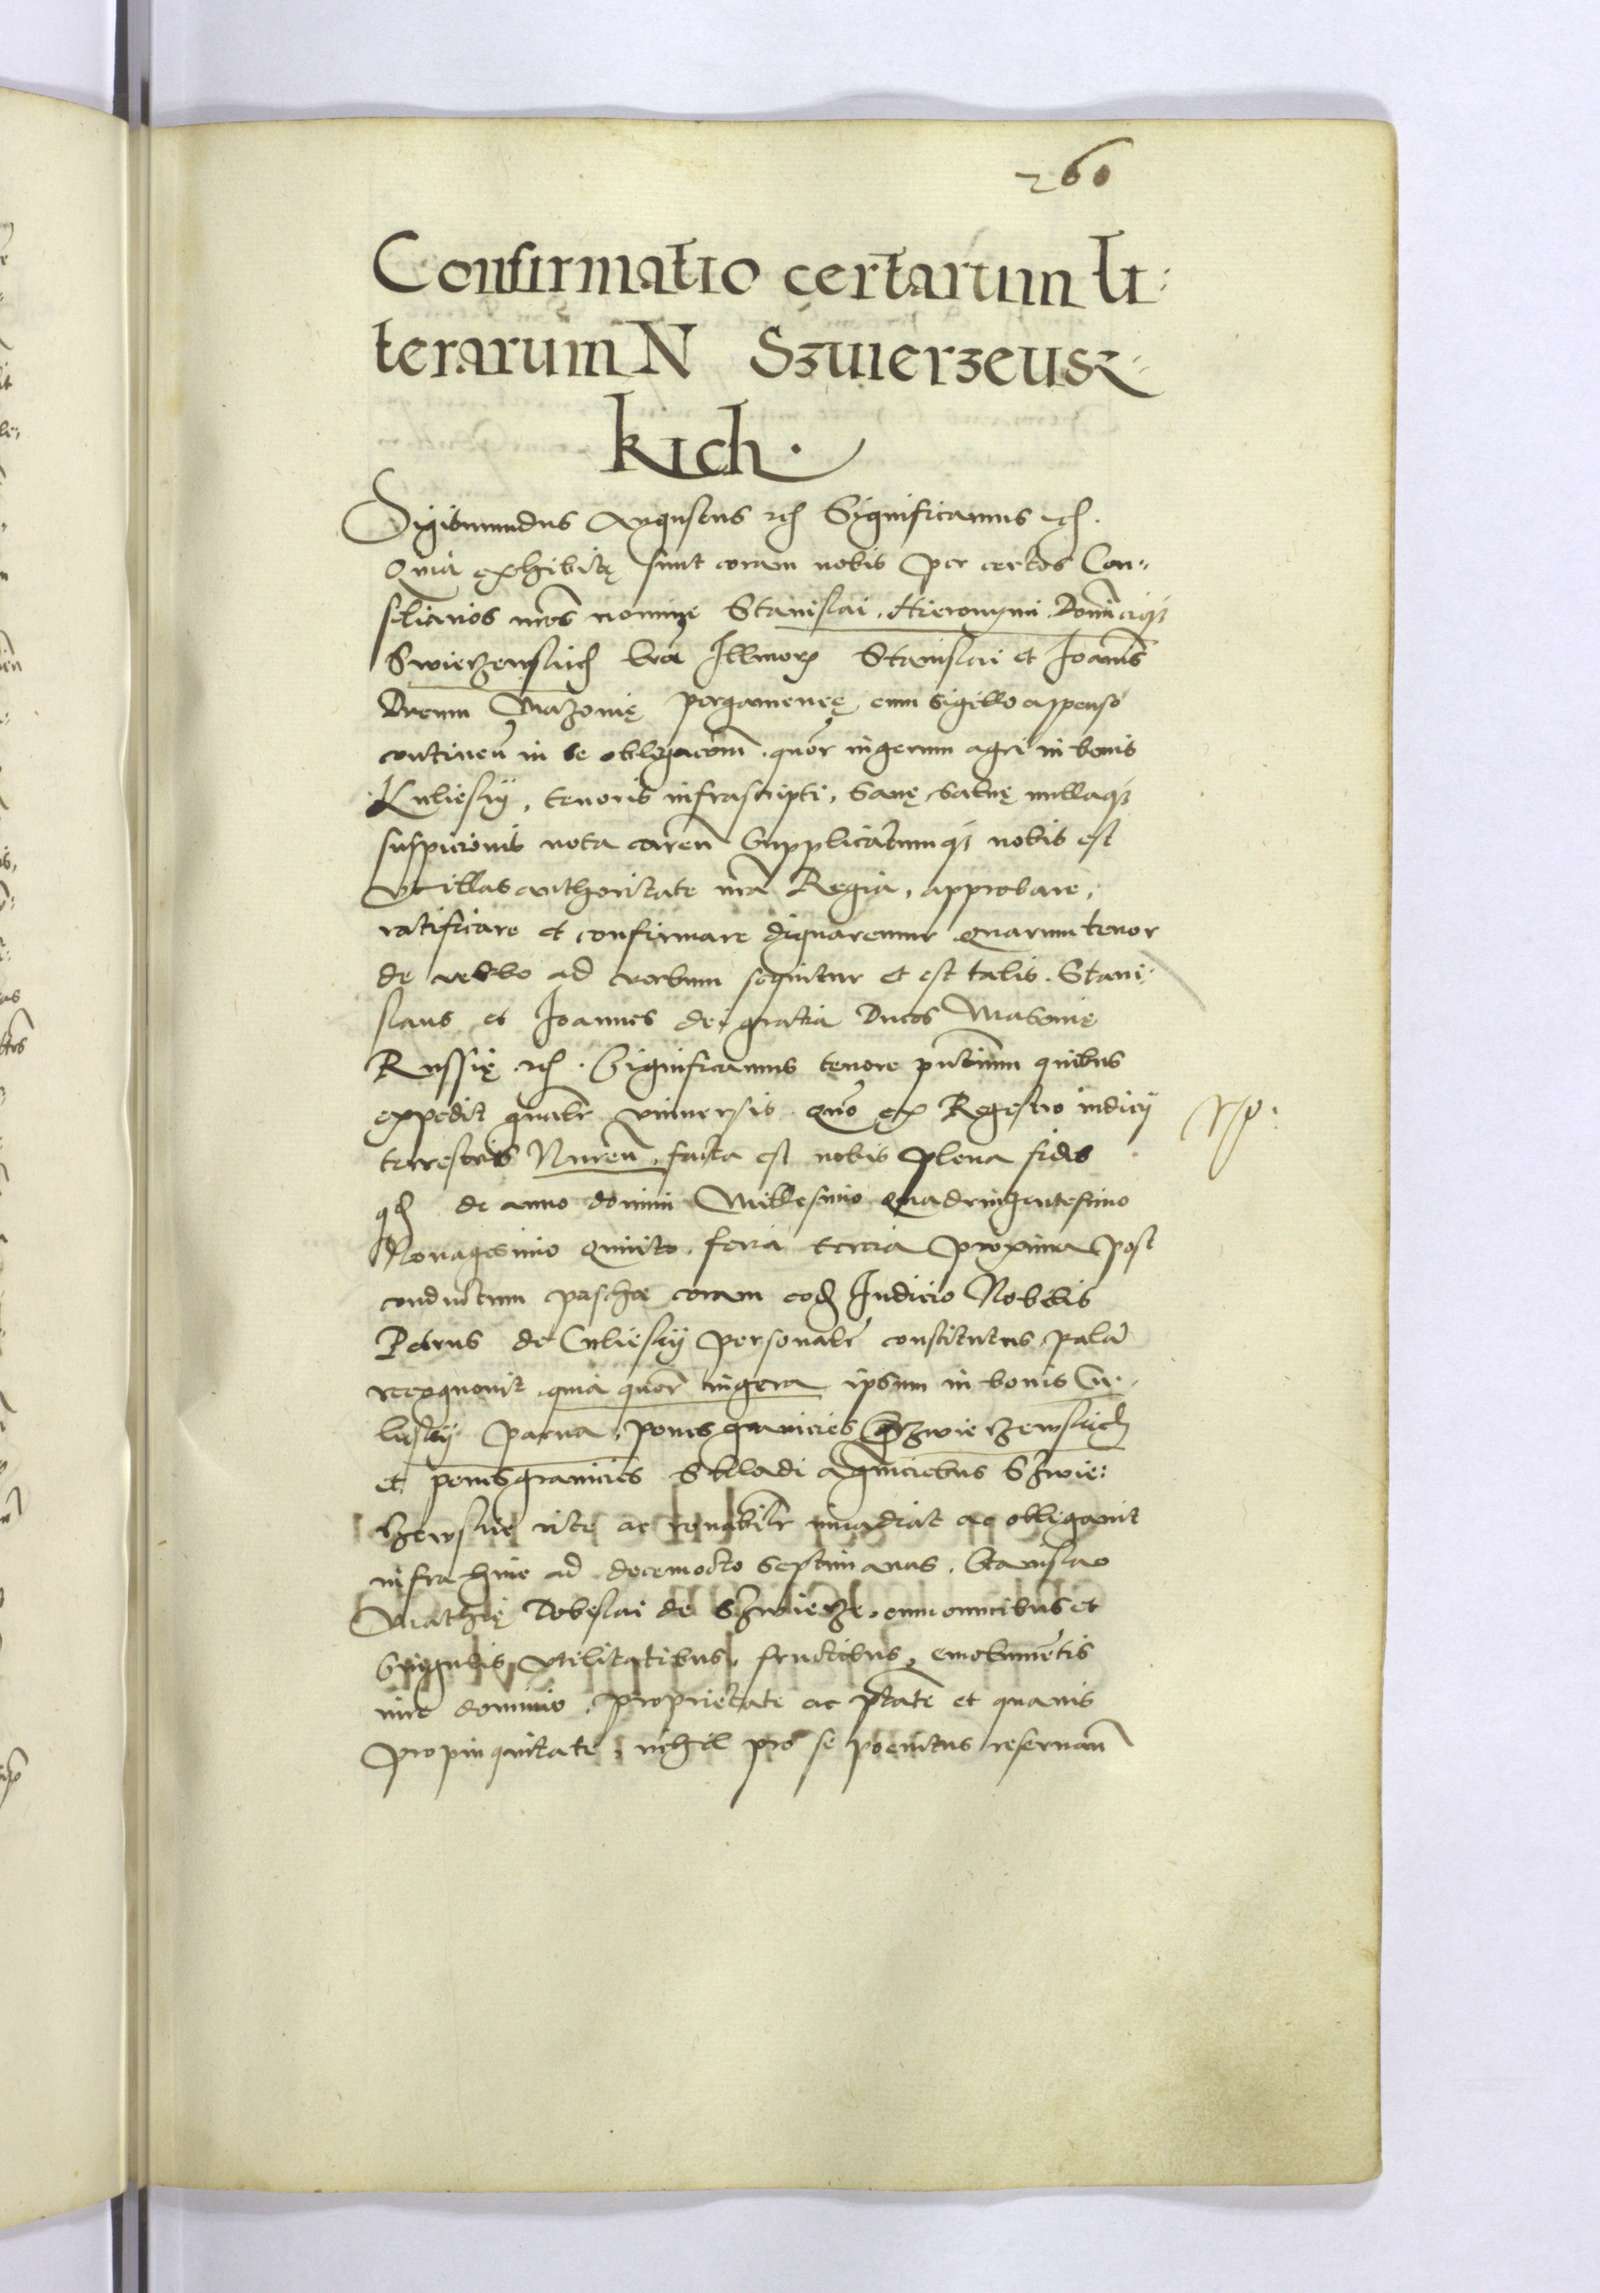 260
Confirmatio certarum li:
terarum N Szwierzewsz-
kich.
Sigismundus Augustus etc Significamus etc.
Quia exhibitę sunt coram nobis per certos Con-
siliarios nros nomine Stanislai, Hieronymi Dominiciq
Swierzewskich lrae Illmor Stanislai et Joannis
Ducum Mazonię pergameneę cum sigillo appenso
continen in se obligacoem quor iugerum agri in bonis
Kuliesky, tenoris infrascripti, sanę salvę nullaq
suspicionis nota caren Supplicatumq nobis est
ut illas authoritate nra Regia, approbare,
ratificare et confirmare dignaremur quarum tenor
de verbo ad verbum sequitur et est talis. Stani:
slaus et Joannes dei gratia Duces Masonię
Russię etc. Significamus tenore pntium quibus
expedit universis. Quo ex Regestro iudicij
terrestris Nuren, facta est nobis plena fides
qd de anno domini Millesimo quadringentesimo
Nonagesimo quinto, feria tercia proxima post
conductum paschae coram eod Judicio Nobilis
Petrus de Culiesky personalr constitutus palam
recognovit quia quor iugera ipsum in bonis Cu-
liesky parva, penes granicies Szwierzewskich
et penes granicies Skladi a graniciebus Szwie:
rzewskie rite ac ronabilr invadiat ac obligavit
infra hinc ad decemocto septimanas. Stanislao
Mathię Dobeslai de Szwierze, cum omnibus et
singulis utilitatibus, fructibus, emolumentis
iure dominio, proprietate ac ptate et quavis
propinquitate, nihil pro se poenitus reservan